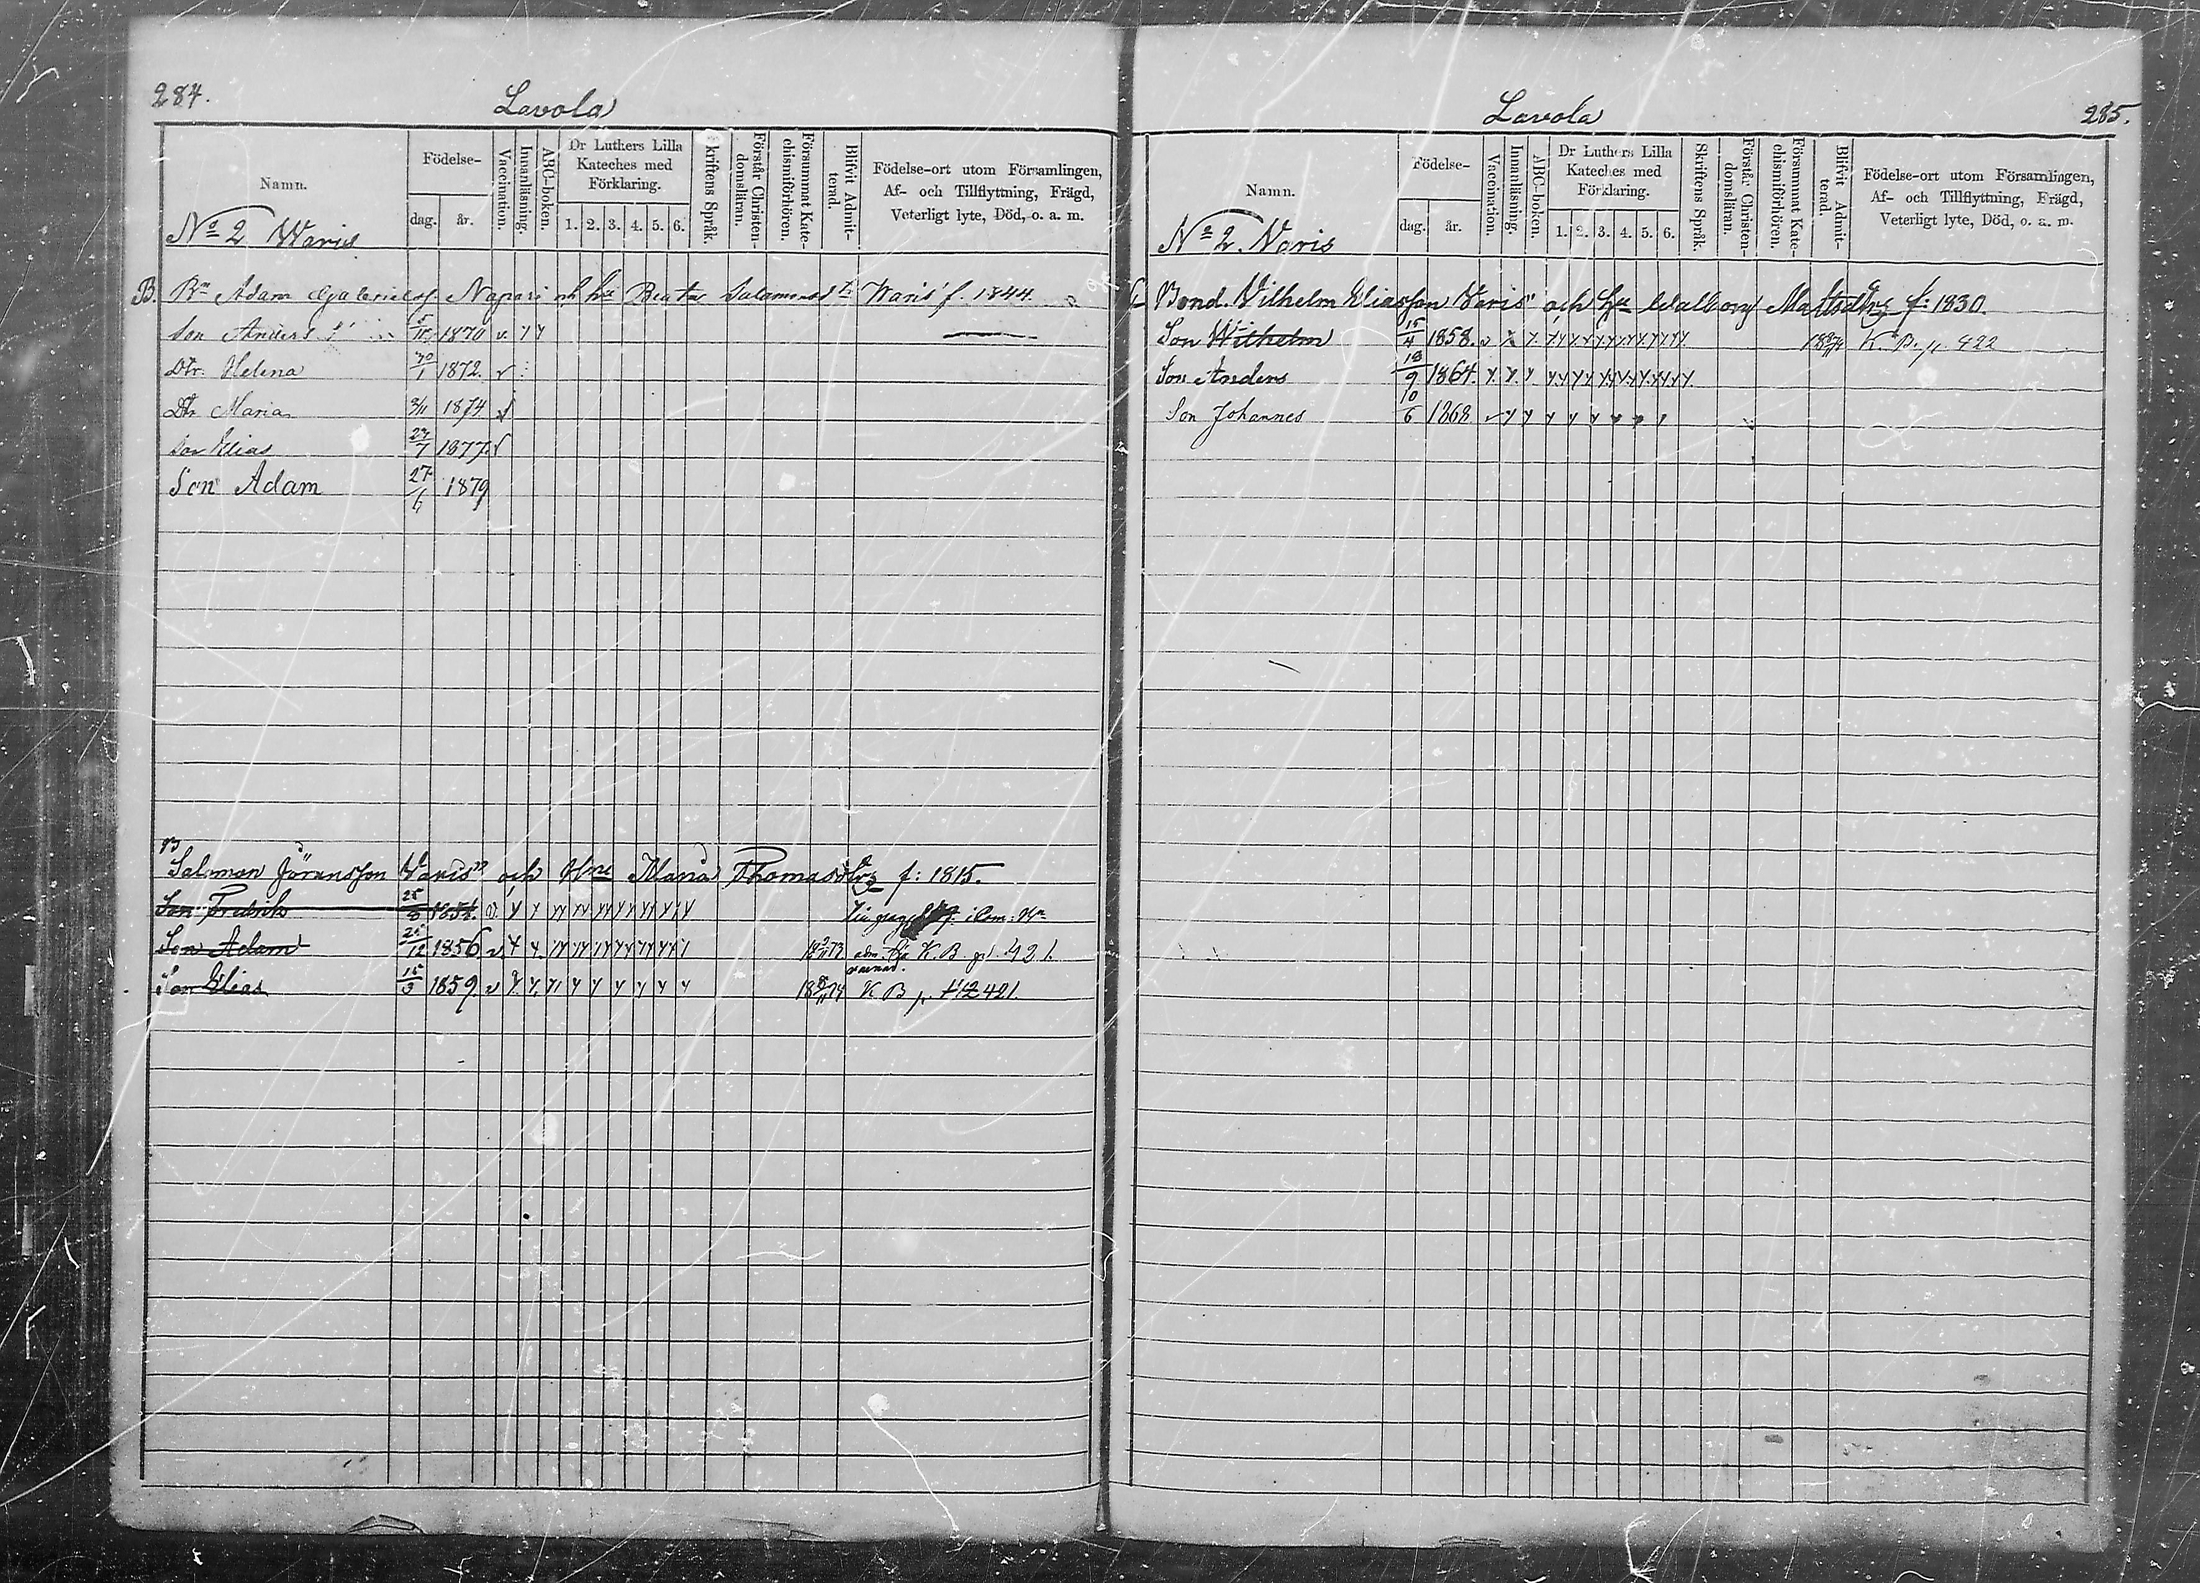 284.
Lavola
Namn.
Födelse-
dag.
år.
Vaccination.
Innanläsning.
ABC-boken.
Dr Luthers Lilla
Kateches med
Förklaring.
1. 2. 3. 4. 5. 6.
Skriftens Språk.
Förstår Christen-
domsläran.
Försummat Kate-
chismiförhören.
Blifvit Admit-
terad.
Födelse-ort utom Församlingen,
Af- och Tillflyttning, Frägd,
Veterligt lyte, Död, o. a. m.
No 2 Waris
B. Bn Adam Gabrielss. Napari och hu Beata Salamonsdtr Waris f. 1844.
Son Anders 1870 v. y y
Dtr. Helena 1872. v
Dtr Maria 2/11 1874 v
Son Elias 23/7 1877. v
Son Adam 27/6 1879
Salomon Jöransson Waris och Hu Maria Thomasdtr f: 1815.
Son Fredrik 25/8 1854. v. y y yy yy yy yy yy yy
Son Adam 25/12 1856 v y y K. B. p. 421.
Son Elias 15/3 1859. v y. y. y y y y y y y K B p. 412 421.
285.
Lavola
Namn.
Födelse-
dag.
år.
Vaccination.
Innanläsning.
ABC-boken.
Dr Luthers Lilla
Kateches med
Förklaring.
1. 2. 3. 4. 5. 6.
Skriftens Språk.
Förstår Christen-
domsläran.
Försummat Kate-
chismiförhören.
Blifvit Admit-
terad.
Födelse-ort utom Församlingen,
Af- och Tillflyttning, Frägd,
Veterligt lyte, Död, o. a. m.
No 2. Varis
Bond. Wilhelm Eliasson Varis och Hu Walborg Mattsdtr f: 1830.
Son Wilhelm 15/4 1858. v y y K. B. p. 422
Son Anders 18/9 1864. y. y. y
Son Johannes 10/6 1868. v y y y y y y y y